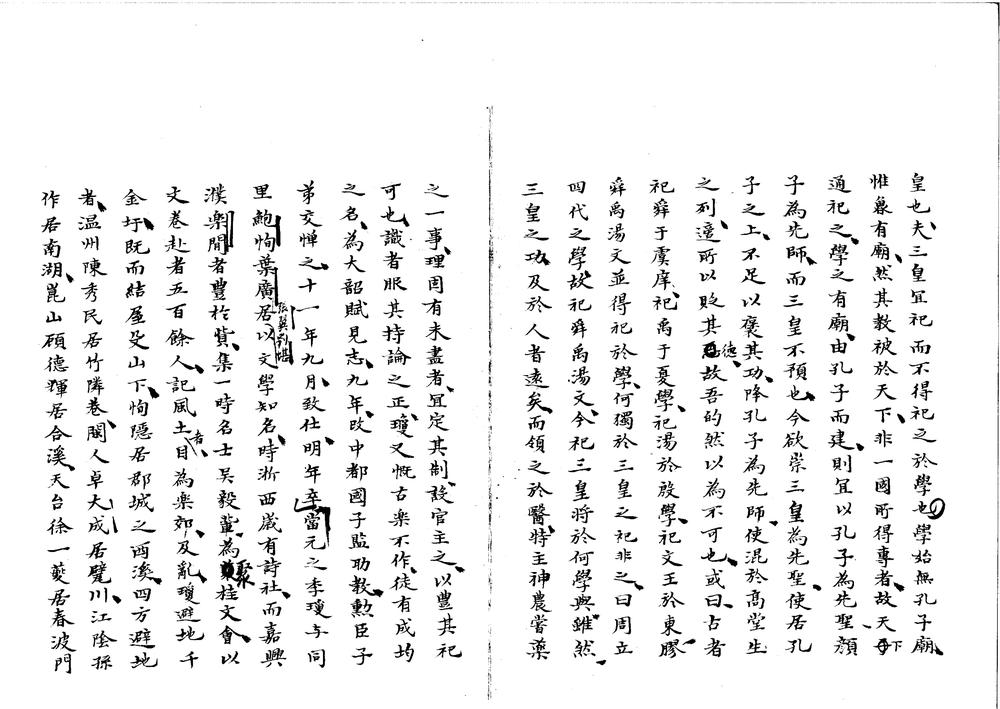 皇也夫三皇宜祀而不得祀之於學也學始無孔子廟
惟縣有廟然其教被於天下非一國所得專者故天下
通祀之學之有廟由孔子而建則宜以孔子為先聖顏
子為先師而三皇不預也今欲崇三皇為先聖使居孔
子之上不足以褒其功降孔子為先師使混於高堂生
之列適所以貶其德故吾的然以為不可也或曰古者
祀舜于虞庠祀禹于夏學祀湯於殷學祀文王於東膠
舜禹湯文並得祀於學何獨於三皇之祀非之曰周立
四代之學故祀舜禹湯文今祀三皇將於何學與雖然
三皇之功及於人者遠矣而領之於醫特主神農嘗藥
之一事理固有未盡者宜定其制設官主之以豊其祀
可也識者服其持論之正瓊又慨古樂不作徒有成均
之名為大韶賦見志九年改中都國子監助教勲臣子
弟交憚之十一年九月致仕明年卒當元之季瓊与同
里鮑恂葉廣居張翼劉堪以文學知名時浙西歲有詩社而嘉興
濮樂閒者豊於貲集一時名士吴毅軰為聚桂文會以
文卷赴者五百餘人記風土者目為樂郊及亂瓊避地千
金圩既而結屋殳山下恂隱居郡城之西溪四方避地
者温州陳秀民居竹隣巷閩人卓大成居甓川江陰孫
作居南湖崑山顾德輝居合溪天台徐一夔居春波門